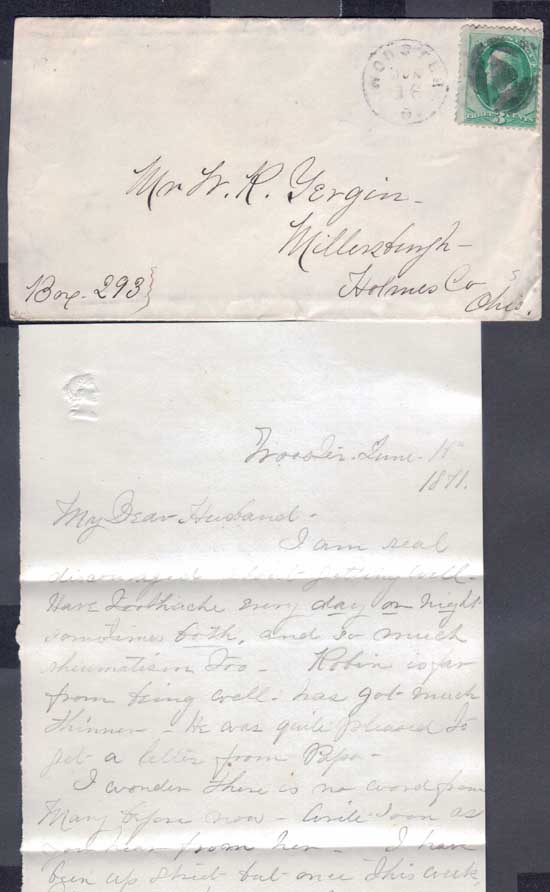 WOOSTER
JUN
O.
THREE CENTS
Mr W. R. Gergin
Millersburgh
Holmes Co
Ohio.
Box. 293
Wooster. June. 11th
1871.
My Dear Husband.
I am real
discouraged about getting well.
Have Toothache every day or night
sometimes both, and so much
rheumatism too - Robin is far
from being well. has got much
thinner - He was quite pleased to
get a letter from Papa -
I wonder there is no word from
Mary before now - Write soon as
you hear from her - I have
been up street but once this week